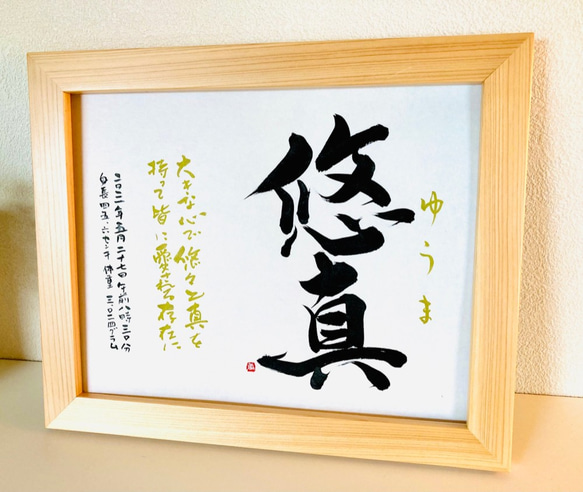 ゆうま
悠真
大きな心で悠々と真を
持って皆に愛される存在に
二〇二二年五月二十七日午前八時三〇分
身長四五、六センチ 体重 三、〇二四グラム